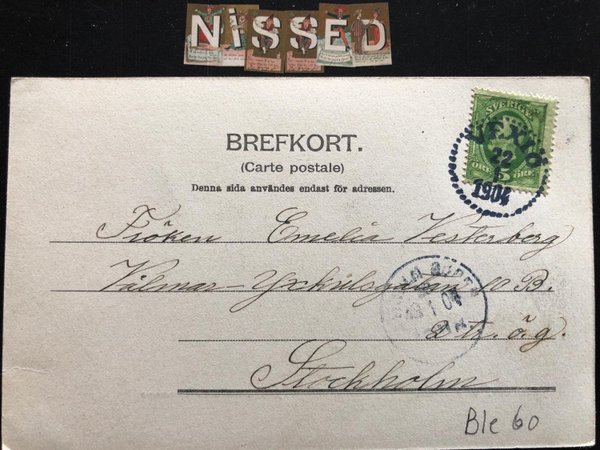 NiSSED
BREFKORT.
(Carte postale)
Denna sida användes endast för adressen.
SVERIGE
5
ÖRE ÖRE
WEXIÖ
22
1
1904
Fröken Emelia Vesterberg
Valmar-Yxkullsgatan 10 B.
2 tr. ö.g.
Stockholm
Ble 60